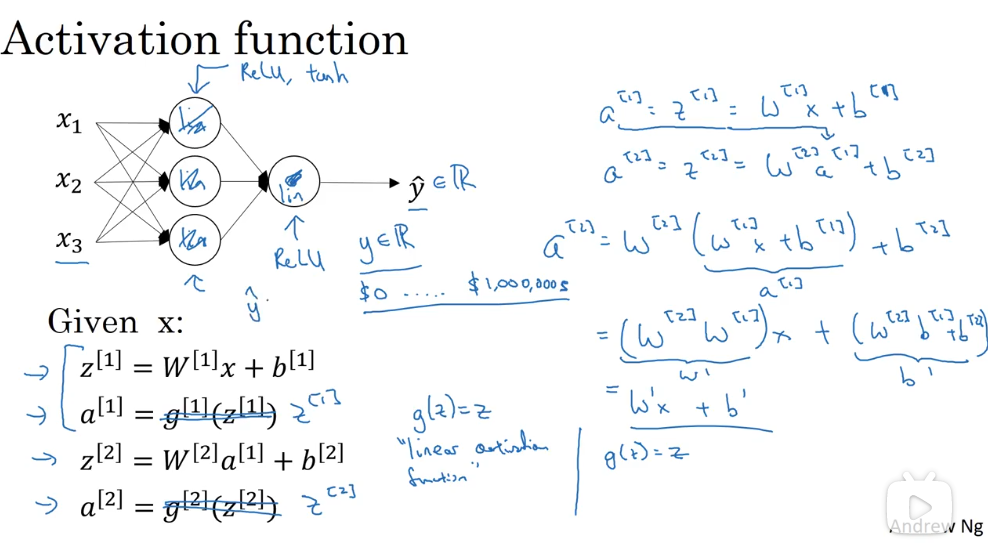 Activation function
ReLU, tanh
x₁
x₂
x₃
lin
ŷ ∈ ℝ
ReLU
y ∈ ℝ
$0 ..... $1,000,000s
ŷ
Given x:
→ z[1] = W[1]x + b[1]
→ a[1] = g[1](z[1]) z[1]
→ z[2] = W[2]a[1] + b[2]
→ a[2] = g[2](z[2]) z[2]
g(z) = z
"linear activation
function"
a[1] = z[1] = W[1]x + b[1]
a[2] = z[2] = W[2]a[1] + b[2]
a[2] = W[2](W[1]x + b[1]) + b[2]
a[1]
= (W[2]W[1])x + (W[2]b[1] + b[2])
W' b'
= W'x + b'
g(z) = z
Andrew Ng